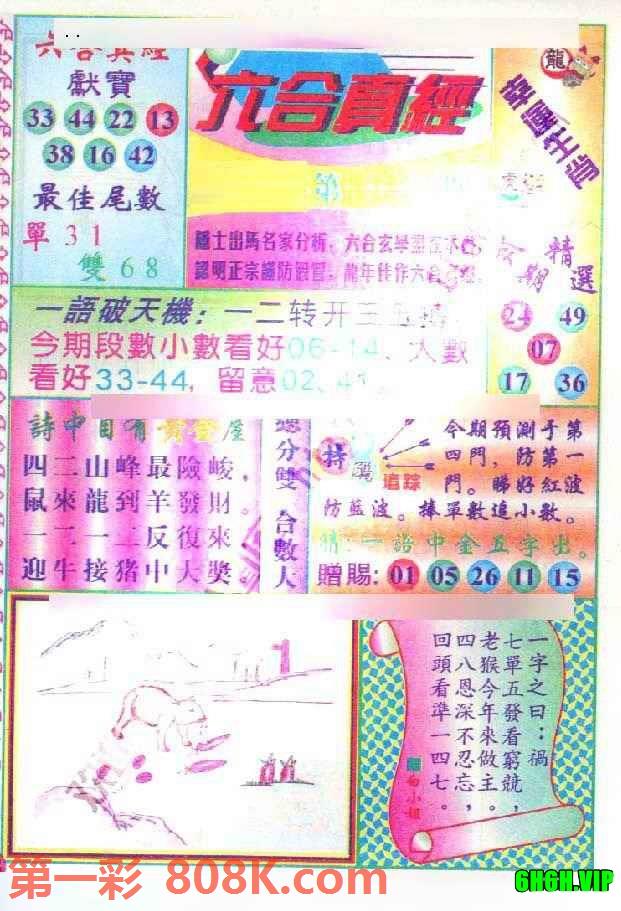 六合真經
獻寶
33 44 22 13
38 16 42
最佳尾數
單 3 1
雙 6 8
六合真經
龍
隱士出馬名家分析,六合玄學盡在
認明正宗謹防
期
精選
24 49
07
17 36
一語破天機:一二转开三五
今期段數小數看好06-14、大數
看好33-44,留意02、41
詩中自有黃金屋
四二山峰最險峻,
鼠來龍到羊發財。
一二一二反復來
迎牛接猪中大獎。
總分雙 合數大
特
追踪
今期預測于第
四門,防第一
門。睇好紅波
防藍波。捧單數追小數。
猜:一語中金五字出。
贈賜:01 05 26 11 15
1
一字之曰:禍
七單五發看窮兢,
老猴今年來做主。
四八恩深不忍忘,
回頭看準一四七。
白小姐
第一彩 808K.com
6H6H.VIP